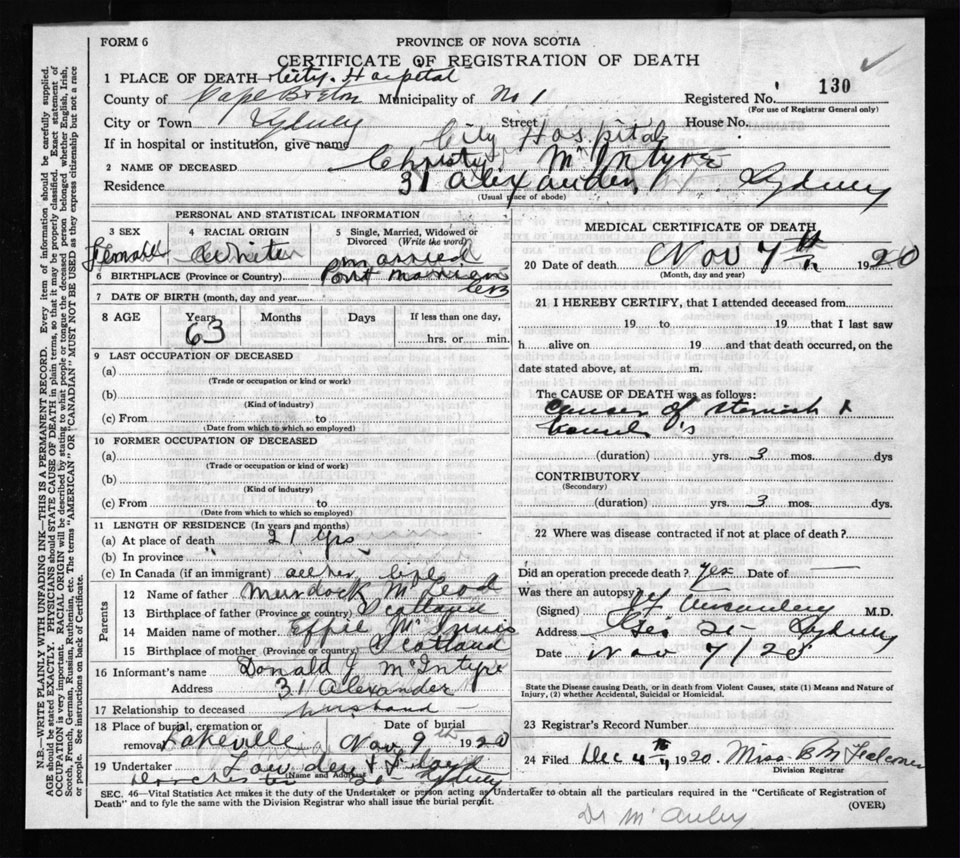 FORM 6
PROVINCE OF NOVA SCOTIA
CERTIFICATE OF REGISTRATION OF DEATH
1 PLACE OF DEATH City Hospital
County of Cape Breton Municipality of No 1 Registered No. 130
(For use of Registrar General only)
City or Town Sydney Street House No.
If in hospital or institution, give name City Hospital
2 NAME OF DECEASED Christy McIntyre
Residence 31 Alexander St. Sydney
(Usual place of abode)
PERSONAL AND STATISTICAL INFORMATION
3 SEX Female
4 RACIAL ORIGIN White
5 Single, Married, Widowed or Divorced (Write the word) Married
6 BIRTHPLACE (Province or Country) Port Morien CB
7 DATE OF BIRTH (month, day and year)
8 AGE Years 63 Months Days If less than one day, hrs. or min.
9 LAST OCCUPATION OF DECEASED
(a)
(Trade or occupation or kind or work)
(b)
(Kind of industry)
(c) From to
(Date from which to which employed)
10 FORMER OCCUPATION OF DECEASED
(a)
(Trade or occupation or kind of work)
(b)
(Kind of industry)
(c) From to
(Date from which to which so employed)
11 LENGTH OF RESIDENCE (In years and months)
(a) At place of death 21 yrs
(b) In province "
(c) In Canada (if an immigrant) all her life
Parents
12 Name of father Murdock McLeod
13 Birthplace of father (Province or country) Scotland
14 Maiden name of mother Effie McInnis
15 Birthplace of mother (Province or country) Scotland
16 Informant's name Donald J McIntyre
Address 31 Alexander
17 Relationship to deceased husband
18 Place of burial, cremation or removal Date of burial
Nov 9th 1920
19 Undertaker
(Name and Address)
Dorchester St Sydney
MEDICAL CERTIFICATE OF DEATH
20 Date of death Nov 7th 1920
(Month, day and year)
21 I HEREBY CERTIFY, that I attended deceased from
19 to 19 that I last saw
h alive on 19 and that death occurred, on the
date stated above, at m.
The CAUSE OF DEATH was as follows:
Cancer of stomach &
(duration) yrs. 3 mos. dys
CONTRIBUTORY
(Secondary)
(duration) yrs. 3 mos. dys
22 Where was disease contracted if not at place of death?
Did an operation precede death? yes Date of —
Was there an autopsy?
(Signed) M.D.
Address Geo St Sydney
Date Nov 7/20
State the Disease causing Death, or in death from Violent Causes, state (1) Means and Nature of Injury, (2) whether Accidental, Suicidal or Homicidal.
23 Registrar's Record Number
24 Filed Dec 4th 1920. Miss B M
Division Registrar
SEC. 46—Vital Statistics Act makes it the duty of the Undertaker or person acting as Undertaker to obtain all the particulars required in the "Certificate of Registration of
Death" and to fyle the same with the Division Registrar who shall issue the burial permit.
(OVER)
Dr McAuley
N.B.—WRITE PLAINLY WITH UNFADING INK—THIS IS A PERMANENT RECORD. Every item of information should be carefully supplied.
AGE should be stated EXACTLY. PHYSICIANS should STATE CAUSE OF DEATH in plain terms, so that it may be properly classified. Exact statement of
OCCUPATION is very important. RACIAL ORIGIN will be described by stating to what people or tongue the deceased person belonged whether English, Irish,
Scotch, French, German, Russian, Ruthenian, etc. The terms "AMERICAN" OR "CANADIAN" MUST NOT BE USED as they express citizenship but not a race
or people. See instructions on back of Certificate.